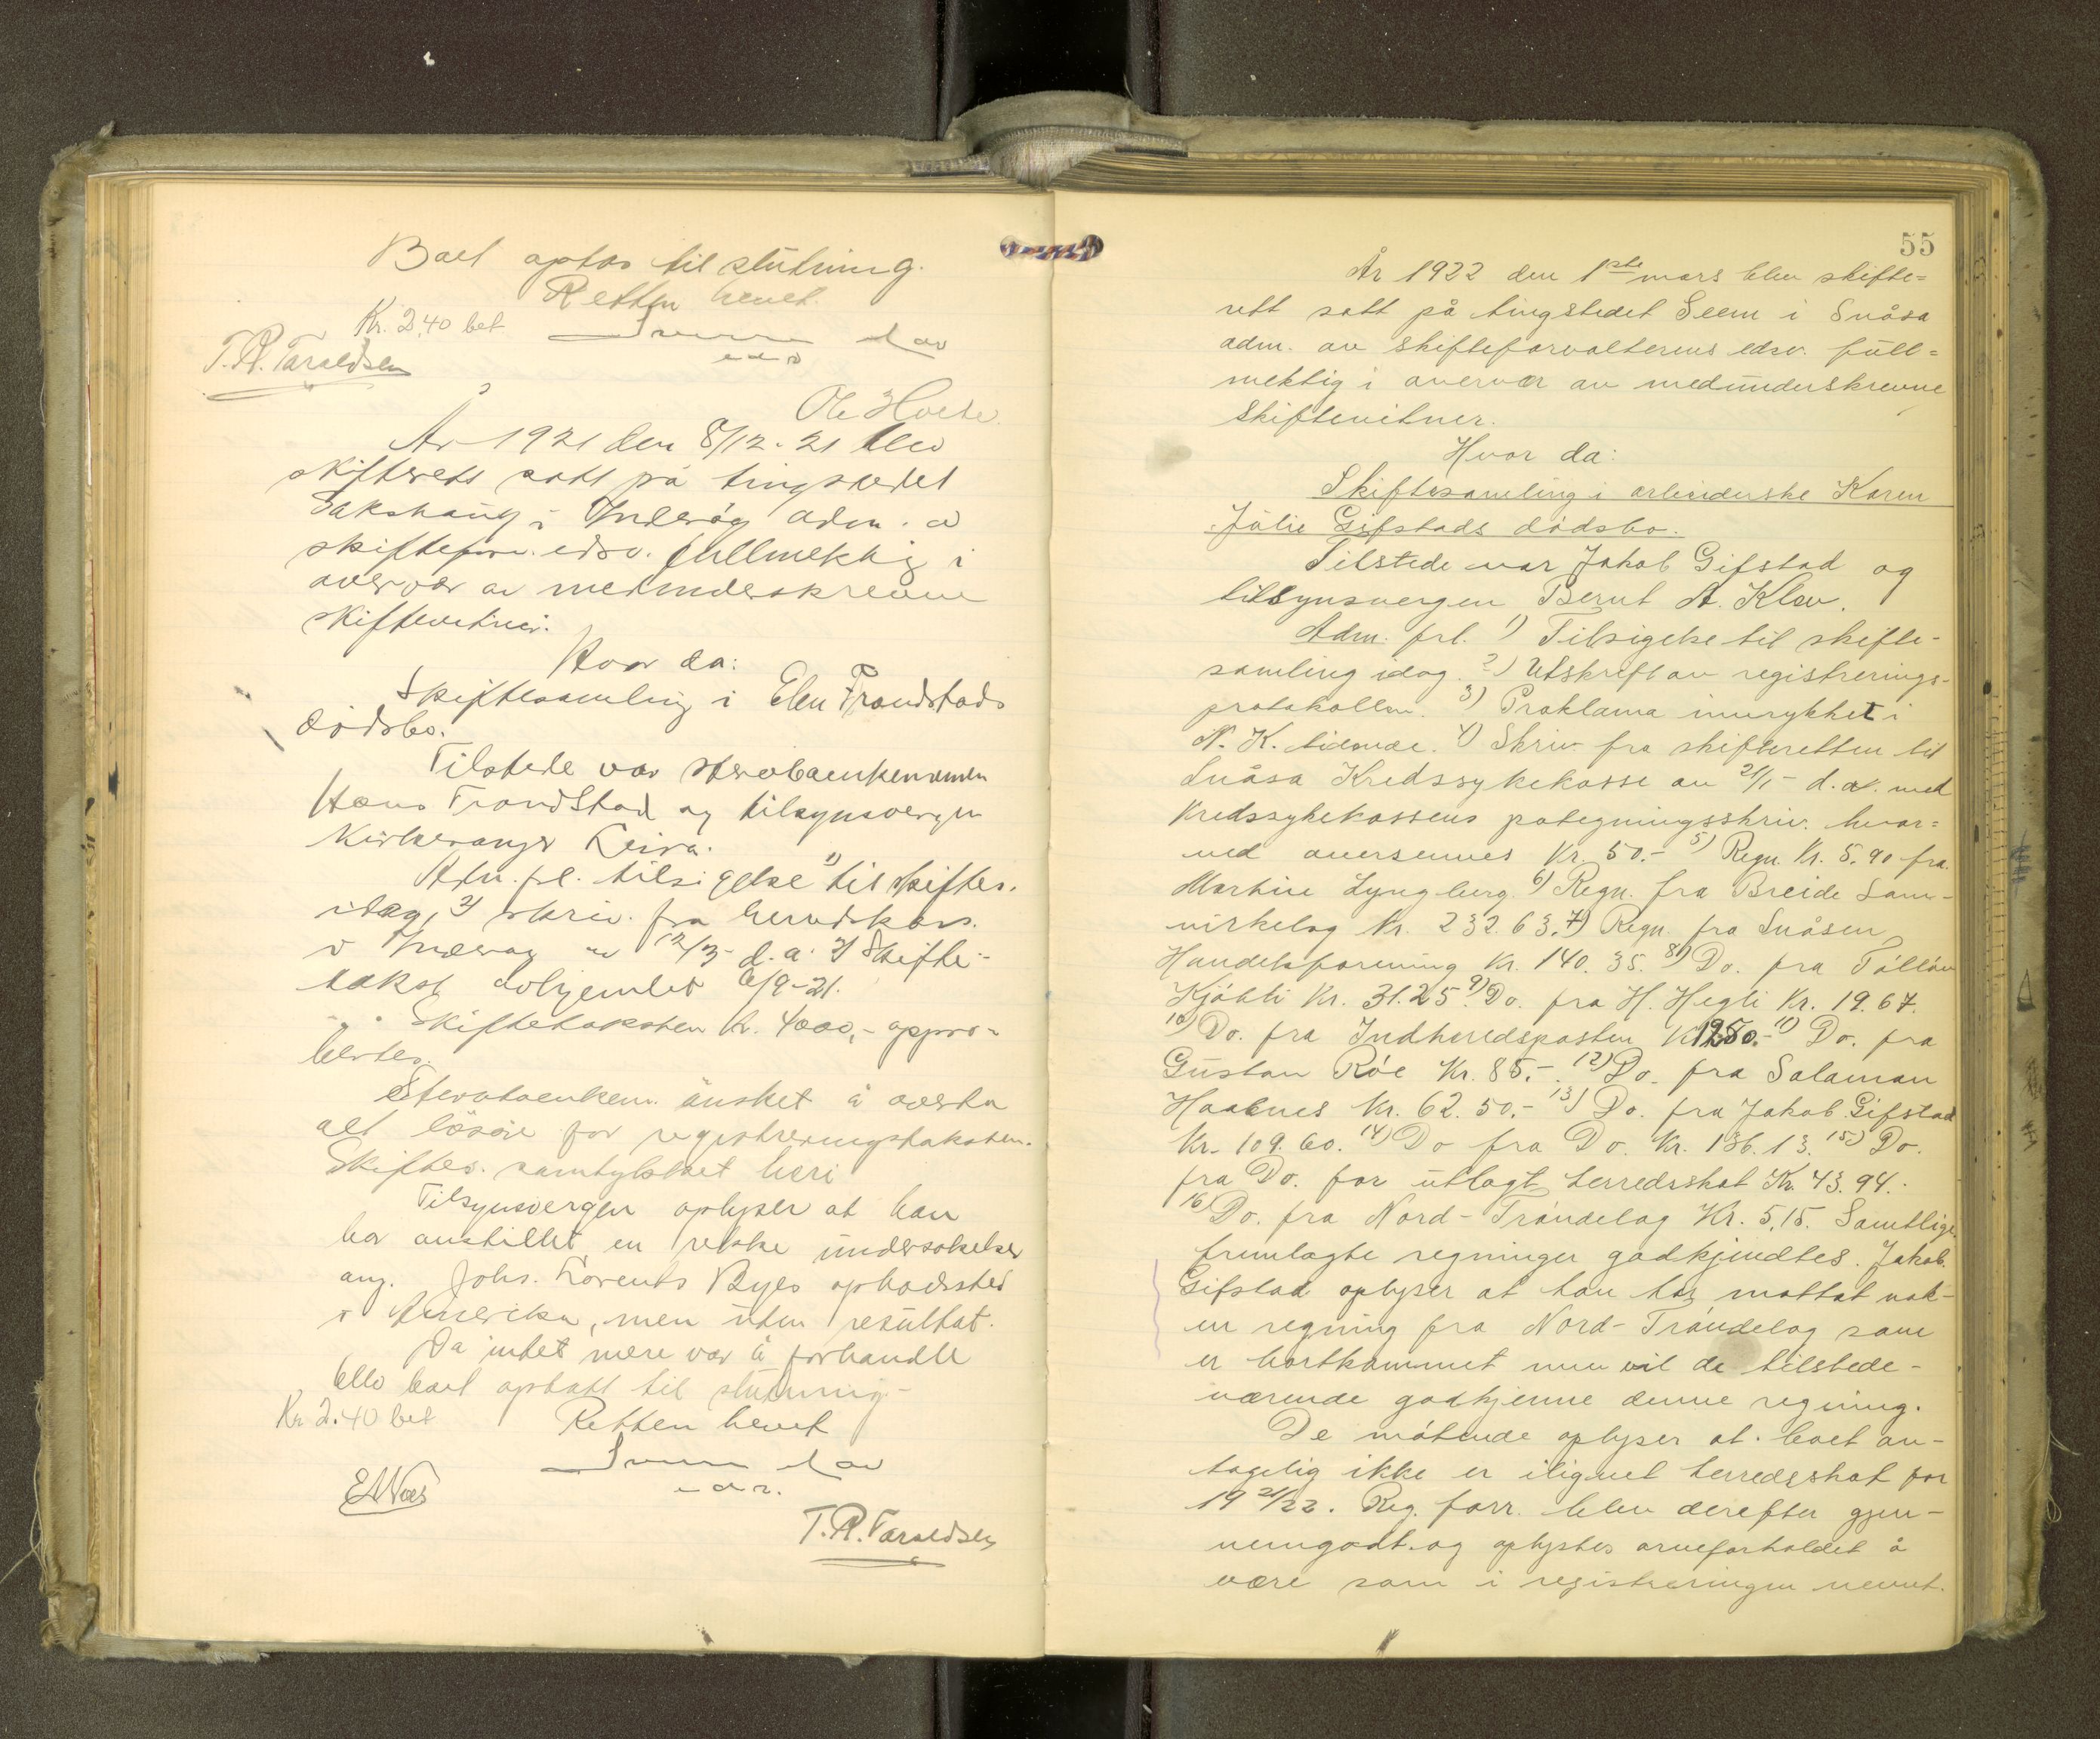 Boet optas til slutning.
Retten hevet.
Kr. 2.40 bet
T. R. Taraldsen
Ole
År 1921 den 8/12-21 blev
skifterett satt på tingstedet
Sakshaug i Inderøy adm. av
skifteforv. edsv. fullmektig i
overvær av medunderskrevne
skiftevitner.
Hvor da:
Skiftesamling i Elen Trondstads
dødsbo.
Tilstede var stervboenkemannen
Hans Trondstad og tilsynsvergen
kirkesanger Leira.
Adm. frl. 1) tilsigelse til skiftes.
idag, 2) skriv. fra herredskass.
i Inderøy av 12/3- d.a. 3) Skifte-
takst avhjemlet 6/9-21.
Skiftetaksten kr. 4000,- appro-
bertes.
Stervboenkem. ønsket å overta
alt løsøre for registreringstaksten.
Skiftes. samtykket heri
Tilsynsvergen oplyser at han
har anstillet en rekke undersøkelser
ang. Johs. Lorents Byes opholdssted
i Amerika, men uten resultat.
Da intet mere var å forhandle
blev boet optatt til slutning.-
Kr 2.40 bet
Retten hevet
T. R. Taraldsen
55
År 1922 den 1ste mars blev skifte=
rett satt på tingstedet Seem i Snåsa
adm. av skifteforvalterens edsv. full=
mektig i overvær av medunderskrevne
skiftevitner.
Hvor da:
Skiftesamling i arbeiderske Karen
Julie Gifstads dødsbo.
Tilstede var Jakob Gifstad og
tilsynsvergen Bernt A. Klev.
Adm. frl. 1) Tilsigelse til skifte-
samling idag. 2) Utskrift av registrerings-
protokollen. 3) Proklama innrykket i
N. K. tidende. 4) Skriv fra skifteretten til
Snåsa Kredssykekasse av 21/1- d.a. med
Kredssykekassens påtegningsskriv. hvor=
ved oversennes Kr. 50.- 5) Regn. Kr. 5.90 fra
Martin Lyngberg. 6) Regn. fra Breide Sam-
virkelag Kr. 232.63. 7) Regn. fra Snåsen
Handelsforening Kr. 140.35. 8) Do. fra
Kjøbli Kr. 31.25. 9) Do. fra H. Hegli Kr. 19.67.
10) Do. fra Indherredsposten Kr. 12.50.- 11) Do. fra
Gustav Røe Kr. 85.-. 12) Do. fra Salamon
Haabnes Kr. 62.50.- 13) Do. fra Jakob Gifstad
Kr. 109.60. 14) Do fra Do. Kr. 136.13. 15) Do.
fra Do. for utlagt herredsskat Kr. 43.94.
16) Do. fra Nord-Trøndelag Kr. 5,15. Samtlige
fremlagte regninger godkjendtes. Jakob
Gifstad oplyser at han har mottat nok-
en regning fra Nord-Trøndelag som
er bortkommet men vil de tilstede-
værende godkjenne denne regning.
De møtende oplyser at boet an-
tagelig ikke er ilignet herredsskat for
19 21/22. Reg. forr. blev derefter gjen-
nemgådt og oplystes arveforholdet å
være som i registreringen nevnt.